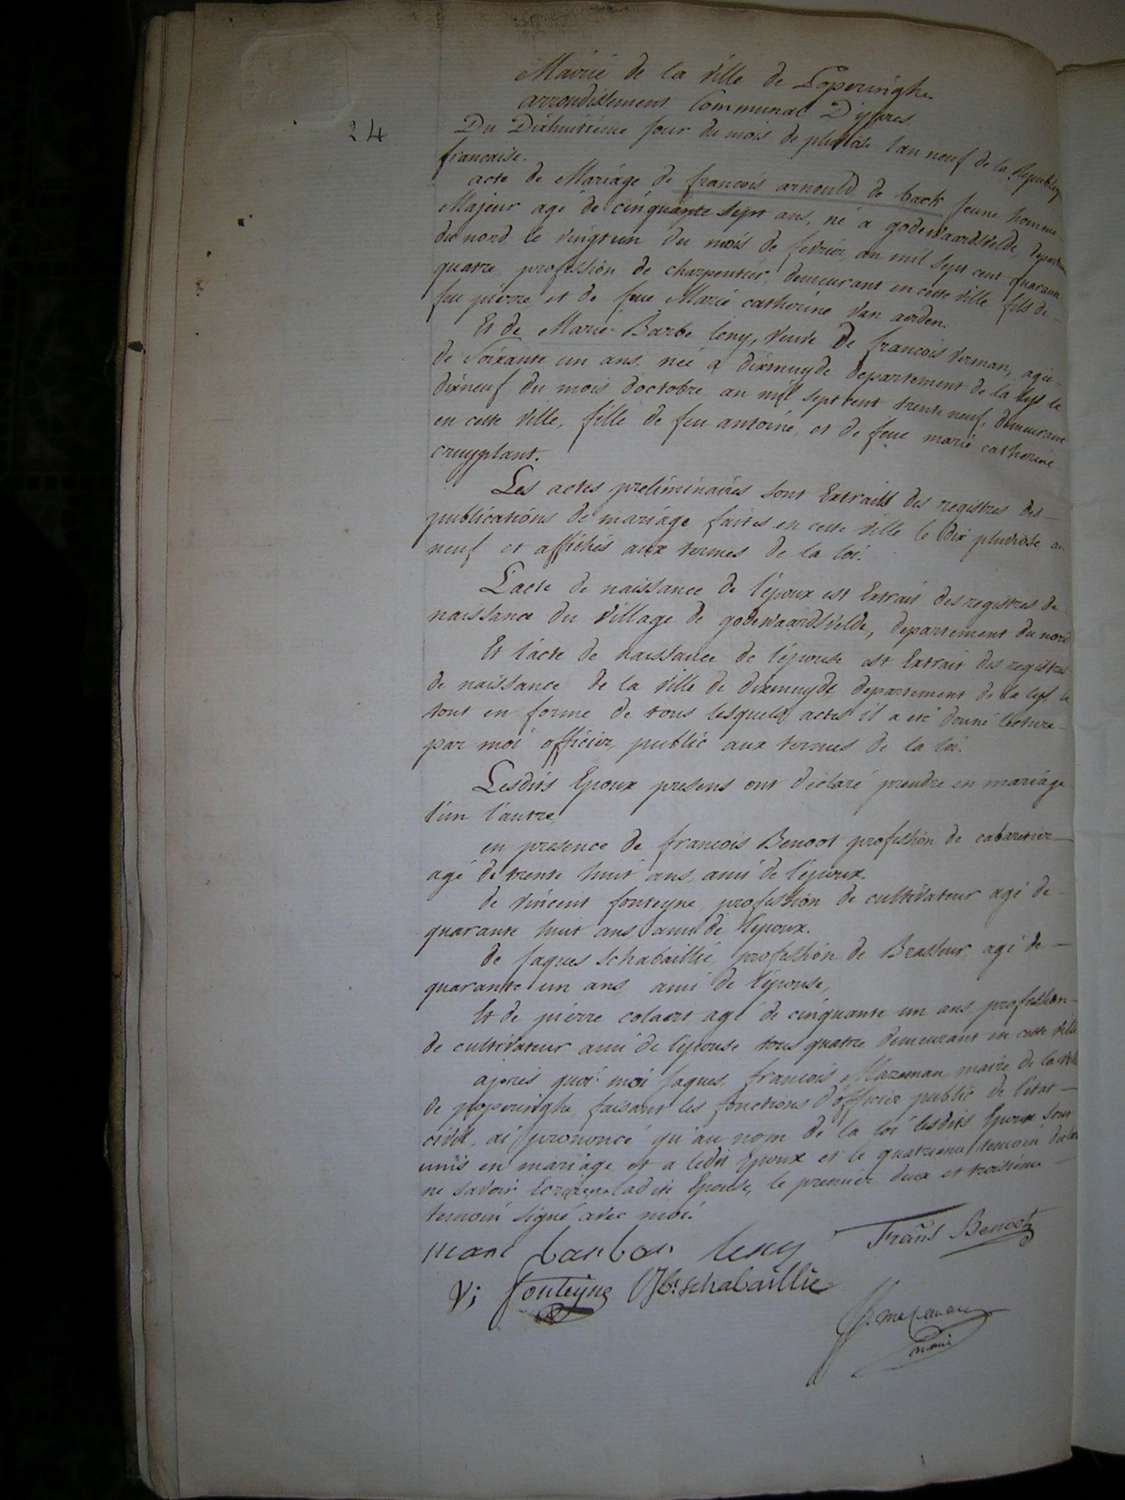 Mairie de la ville de Poperinghe
arrondissement Communal D'ypres
24
Du Dixhuitieme jour du mois de pluviose l'an neuf de la Republiq
francaise.
acte de Mariage de francois arnould de back jeune homme
Majeur agé de cinquante sept ans, né a godewaardsvelde, departem
du nord le vingt un du mois de fevrier an mil sept cent quarante
quatre, profession de charpentier, demeurant en cette ville, fils de
feu pierre et de feue Marie catherine Van aerden.
Et de Marie Barbe leny, veuve de francois verman, agée
de soixante un ans née a dixmuyde departement de la lys le
dixneuf du mois d'octobre an mil sept cent trente neuf, demeurant
en cette ville, fille de feu antoine et de feue marie catherine
cruyplant.
Les actes preliminaires sont Extraits des registres des
publications de mariage faites en cette ville le dix pluviose an
neuf et affichés aux termes de la loi.
L'acte de naissance de l'époux est Extrait des registres de
naissance du village de godewaardsvelde, departement du nord
Et l'acte de naissance de l'épouse est Extrait des registres
de naissance de la ville de dixmuyde departement de la lys le
tout en forme de tous lesquels actes il a eté donné lecture
par moi officier public aux termes de la loi.
Lesdits Epoux presens ont déclaré prendre en mariage
l'un l'autre
en presence de francois Benoot profession de cabaretier
agé de trente huit ans, ami de l'époux.
de vincent fonteyne profession de cultivateur agé de
quarante huit ans ami de l'époux.
de jaques schabaillié profession de Brasseur agé de
quarante un ans ami de l'épouse,
Et de pierre colaert agé de cinquante un ans profession
de cultivateur ami de l'épouse tous quatre demeurant en cette ville
apres quoi moi jaques francois Mazeman maire de la ville
de poperinghe faisant les fonctions d'officier public de l'etat
civil, ai prononcé qu'au nom de la loi lesdits Epoux sont
unis en mariage et a ledit Epoux et le quatrieme temoin declaré
ne savoir Ecrire ladite Epouse, le premier deux et troisieme
temoin signé avec moi.
marie barbar leny Frans Benoot
V; fonteyne schabaillie
J. mazeman
maire